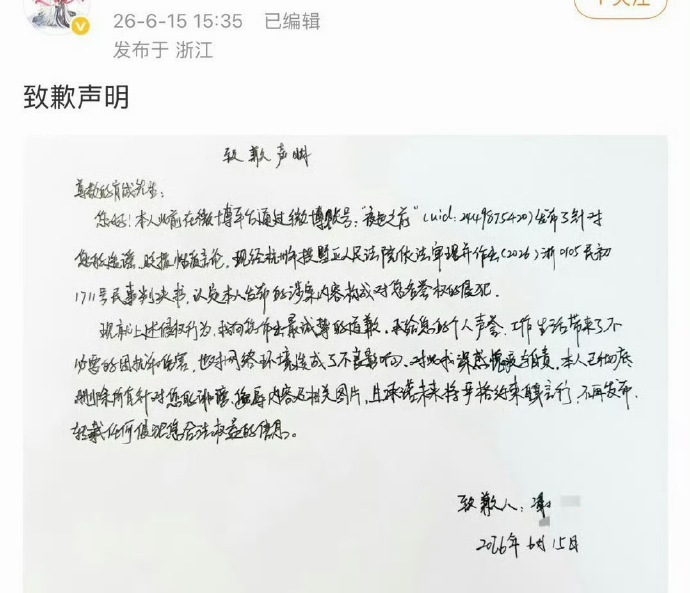 26-6-15 15:35 已编辑
发布于 浙江
致歉声明
致歉声明
尊敬的肖战先生:
您好!本人此前在微博平台通过微博账号:“夜色之前”(uid:2449875420)发布了针对
您的造谣、贬损性言论,现经杭州市拱墅区人民法院依法审理并作出(2026)浙0105民初
1711号民事判决书,认定本人发布的涉案内容构成对您名誉权的侵犯。
现就上述侵权行为,我向您作出最诚挚的道歉。我给您的个人声誉、工作生活带来了不
必要的困扰和伤害,也对网络环境造成了不良影响。对此我深感愧疚与自责。本人已彻底
删除所有针对您的诽谤、侮辱内容及相关图片,且承诺未来将严格约束自己言行,不再发布、
转载任何侵犯您合法权益的信息。
致歉人:
2026年6月15日